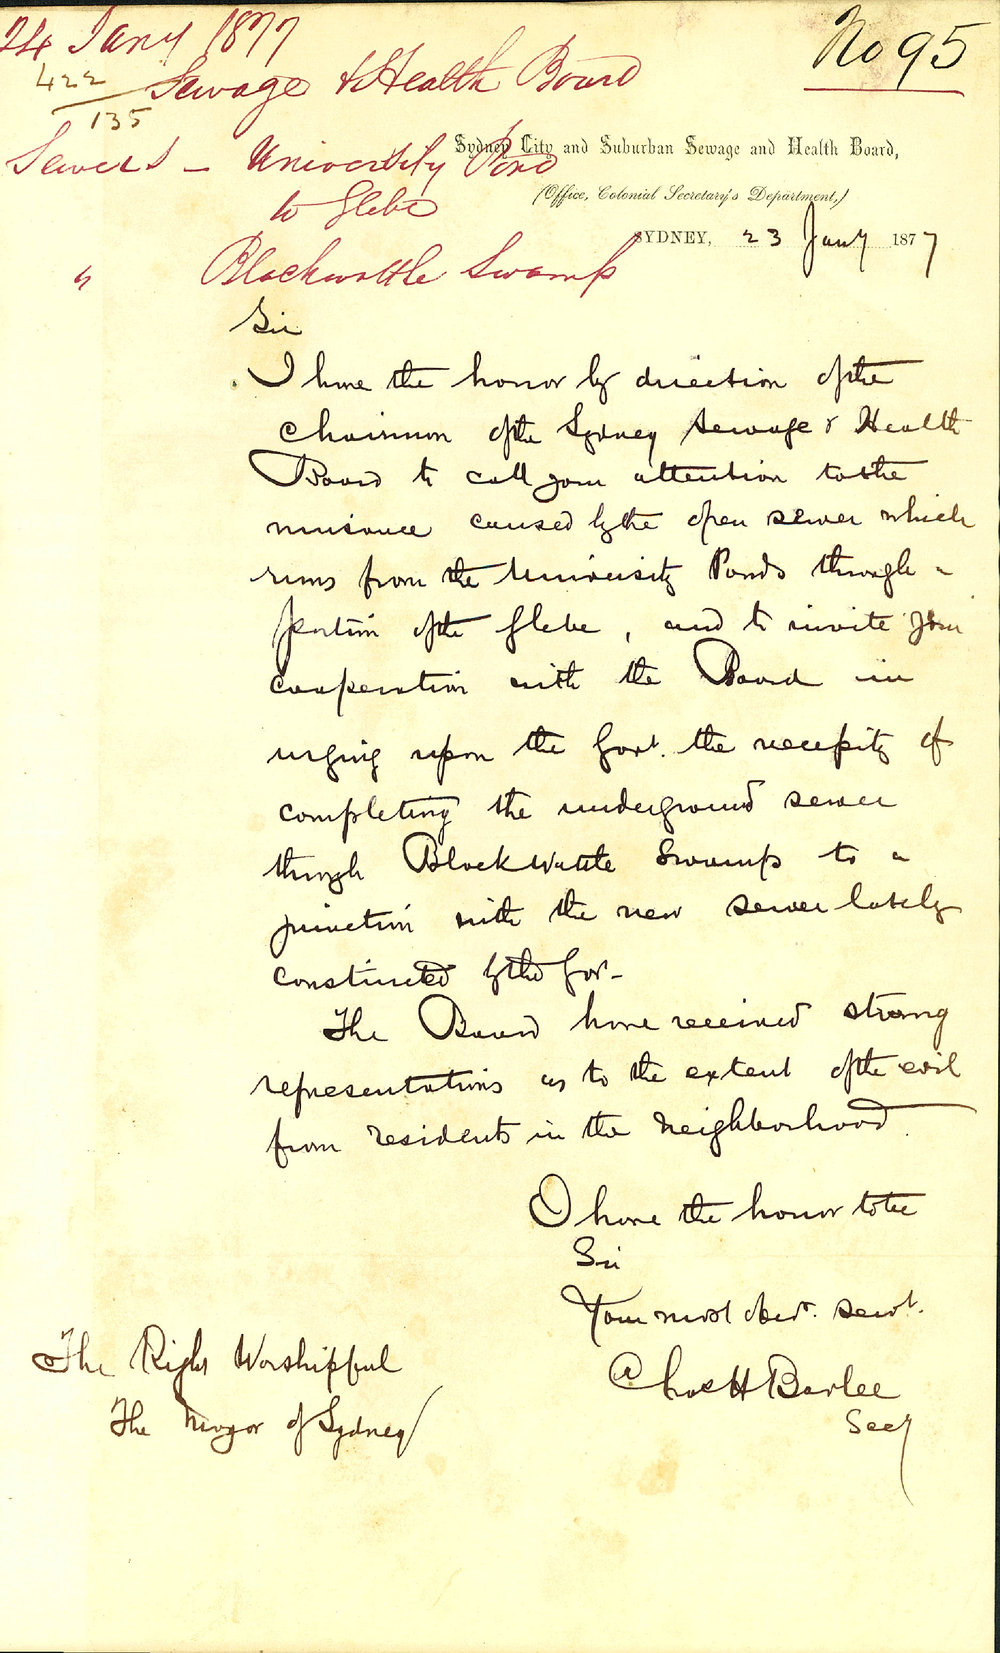 24 Jany 1877
No 95
422
135
Sewage & Health Board
Sydney City and Suburban Sewage and Health Board,
Sewers - University Pond
(Office, Colonial Secretary's Department,)
to Glebe
SYDNEY, 23 Jany 1877
" Blackwattle Swamp
Sir
I have the honor by direction of the
Chairman of the Sydney Sewage & Health
Board to call your attention to the
nuisance caused by the open sewer which
runs from the University Ponds through a
portion of the Glebe, and to invite your
cooperation with the Board in
urging upon the Govt. the necessity of
completing the underground sewer
through Blackwattle Swamp to a
junction with the new sewer lately
constructed by the Govt-
The Board have received strong
representations as to the extent of the evil
from residents in the neighborhood
I have the honor to be
Sir
Your most obedt. servt.
Chas H Barlee
Secy
The Right Worshipful
The Mayor of Sydney